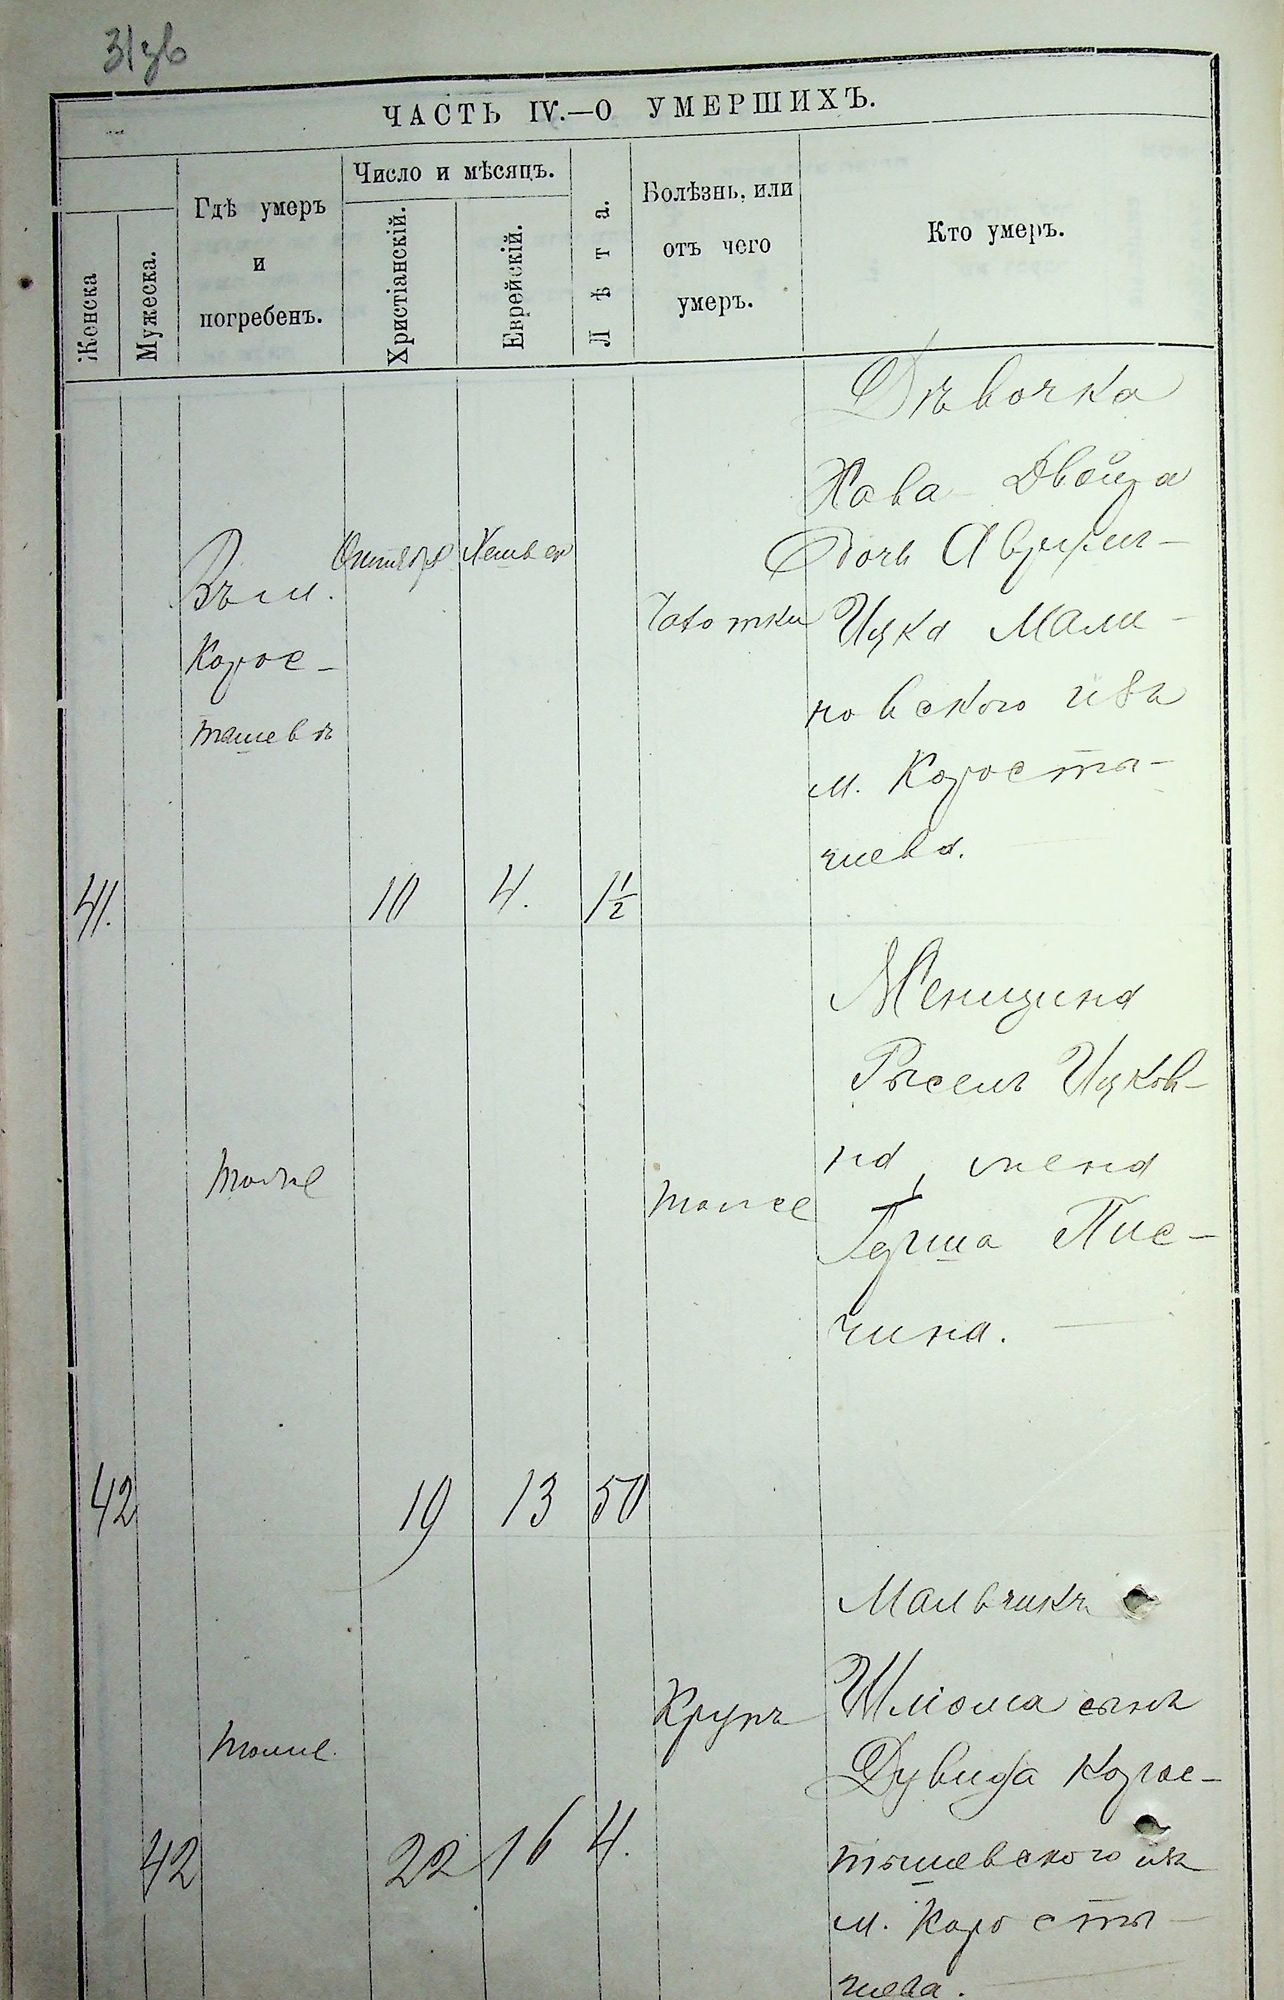 ЧАСТЬ IV.—О УМЕРШИХЪ.
Женска
Мужеска.
Гдѣ умеръ
и
погребенъ.
Число и мѣсяцъ.
Христіанскій.
Еврейскій.
Лѣта.
Болѣзнь, или
отъ чего
умеръ.
Кто умеръ.
41.
Въ м.
Корос-
ташевъ
Октября
10
Хешвен
4.
1½
Чахотки
Дѣвочка
Хава Двойра
дочь Аврум-
Ицка Мали-
новского изъ
м. Короста-
шева.
42
тоже
19
13
50
тоже
Женщина
Рысель Ицков-
на, жена
Герша Пис-
чина.
42
тоже.
22
16
4.
Крупъ
Мальчикъ
Шлiома сынъ
Дувида Корос-
тышевского изъ
м. Коросты-
шева.